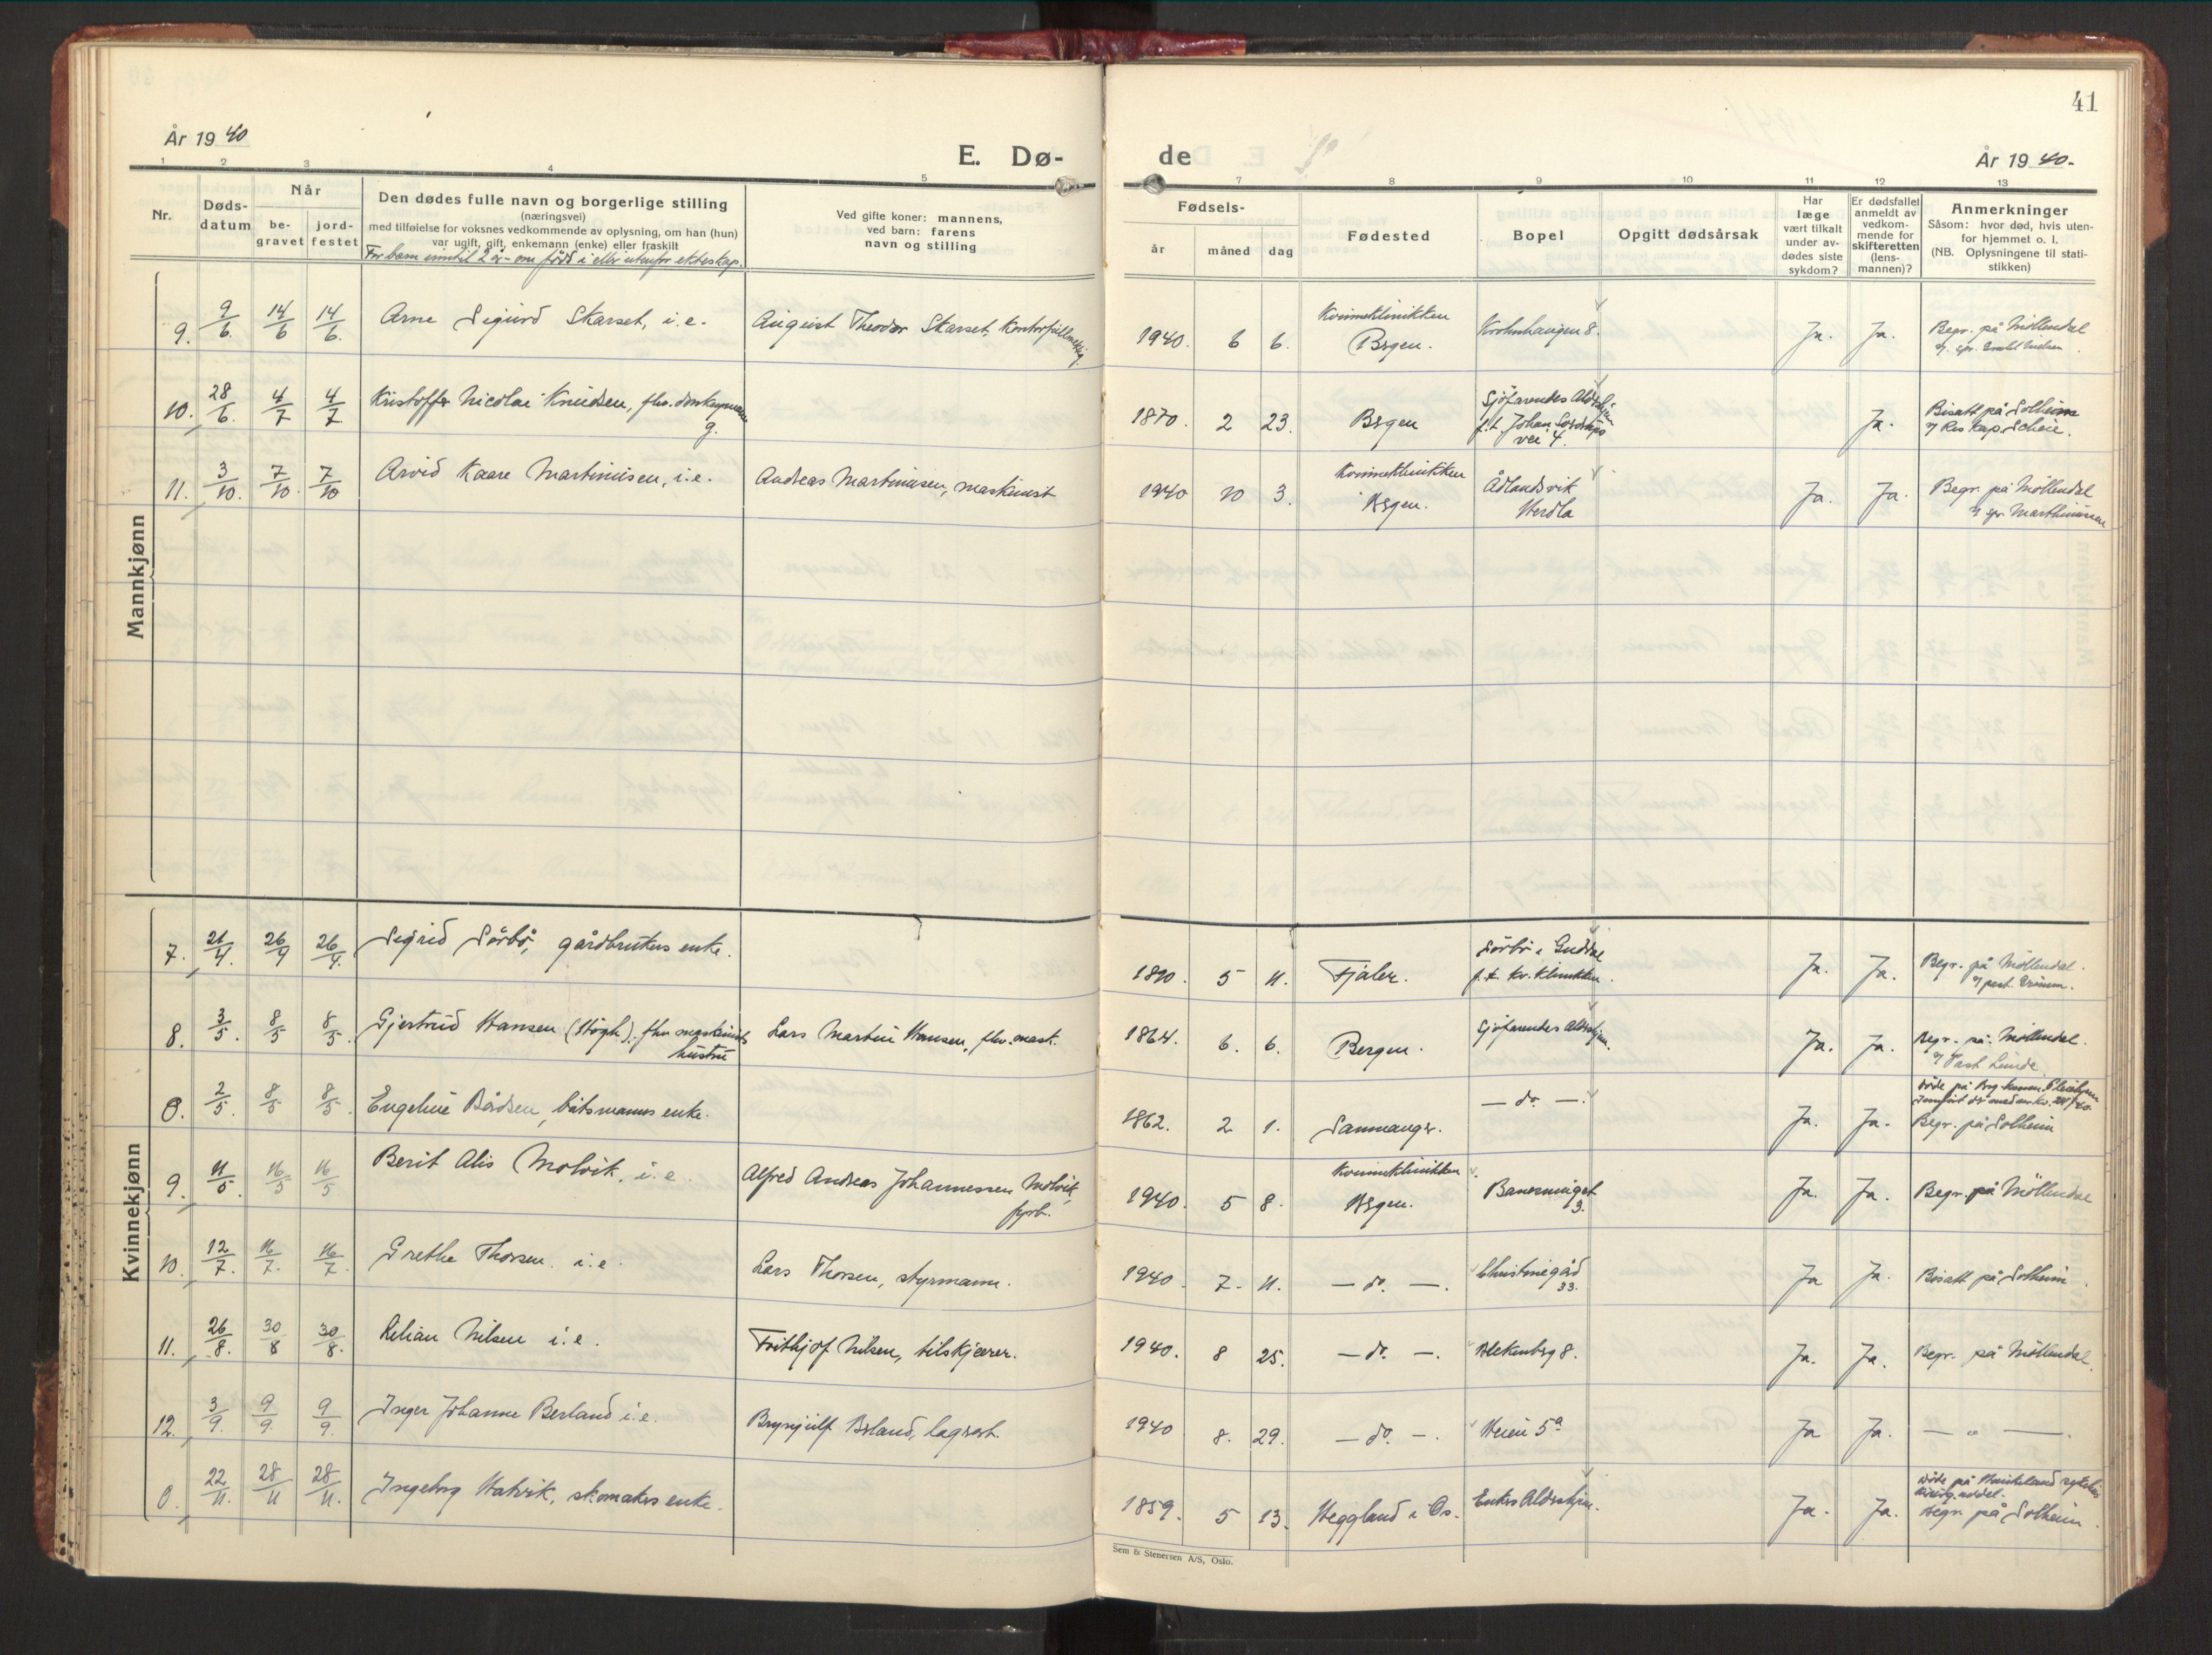 41
År 19 40
E. Dø-
de
År 19 40.
1 2 3 4 5
7 8 9 10 11 12 13
Nr.
Døds-
datum
Når
be-
gravet
jord-
festet
Den dødes fulle navn og borgerlige stilling
(næringsvei)
med tilføielse for voksnes vedkommende av oplysning, om han (hun)
var ugift, gift, enkemann (enke) eller fraskilt
For barn inntil 2 år - om född i eller utenfor ekteskap.
Ved gifte koner: mannens,
ved barn: farens
navn og stilling
Fødsels-
år måned dag
Fødested
Bopel
Opgitt dødsårsak
Har
læge
vært tilkalt
under av-
dødes siste
sykdom?
Er dødsfallet
anmeldt av
vedkom-
mende for
skifteretten
(lens-
mannen)?
Anmerkninger
Såsom: hvor død, hvis uten-
for hjemmet o. l.
(NB. Oplysningene til stati-
stikken)
Mannkjønn
9. 9/6. 14/6 14/6. Arne Sigurd Skarset, i.e. August Theodor Skarset, kontorfullmektig 1940. 6 6. Kvinneklinikken
Bergen. Krohnhaugen 8. Ja. Ja. Begr. på Möllendal
10. 28/6. 4/7 4/7. Kristoffer Nicolai Knudsen, fhv.
g. 1870. 2 23. Bergen Sjöfarendes Aldershjem
f.t. Johan
vei 4. Ja. Bisatt på Solheim
v/ Res. Kap. Scheie.
11. 3/10. 7/10 7/10 Arvid Kaare Martinusen, i.e. Andreas Martinusen, maskinist 1940 10 3. Kvinneklinikken
Bergen. Ådlandsvik
Herdla Ja. Ja. Begr. på Möllendal
Kvinnekjønn
7. 21/4. 26/4 26/4. Sigrid Sörbö, gårdbrukers enke. 1890. 5 11. Fjaler. Sörbö i Guddal
f.t. Kv. klinikken. Ja. Ja. Begr. på Möllendal.
8. 3/5. 8/5 8/5. Gjertrud Hansen (Högh), fhv. maskinists
hustru Lars Martin Hansen, fhv. mask. 1864. 6. 6. Bergen. Sjöfarendes Aldershjem. Ja. Ja. Begr. på Möllendal.
v/ Past. Lunde.
0. 2/5. 8/5 8/5. Engeline Bårdsen, båtsmanns enke. 1862. 2 1. Samnanger. — do. — Ja. Ja. Döde på Berg. komm. Pleiehjem
Begr. på Solheim
9. 11/5. 16/5 16/5 Berit Alis Molvik, i.e. Alfred Andreas Johannessen Molvik,
fyrb. 1940. 5 8. Kvinneklinikken
Bergen. 3. Ja. Ja. Begr. på Möllendal
10. 12/7. 16/7. 16/7 Grethe Thorsen. i.e. Lars Thorsen, styrmann. 1940. 7. 11. — do. —. Christinegård
33. Ja Ja. Bisatt på Solheim.
11. 26/8. 30/8 30/8. Lilian Nilsen i.e. Frithjof Nilsen, bilskjörer. 1940. 8 25. — do. —. Blekenberg 8. Ja. Ja. Begr. på Möllendal.
12. 3/9. 9/9. 9/9. Inger Johanne Berland i.e. Brynjulf Berland, lagerarb. 1940 8. 29. — do. —. Heien 5a Ja Ja. — " —.
0. 22/11. 28/11 28/11. Ingeborg Hatvik, skomakers enke. 1859. 5 13. Heggland i Os. Enkers Aldershjem. Ja. Ja. Döde på Haukeland sykehus
Begr. på Solheim.
Sem & Stenersen A/S, Oslo.